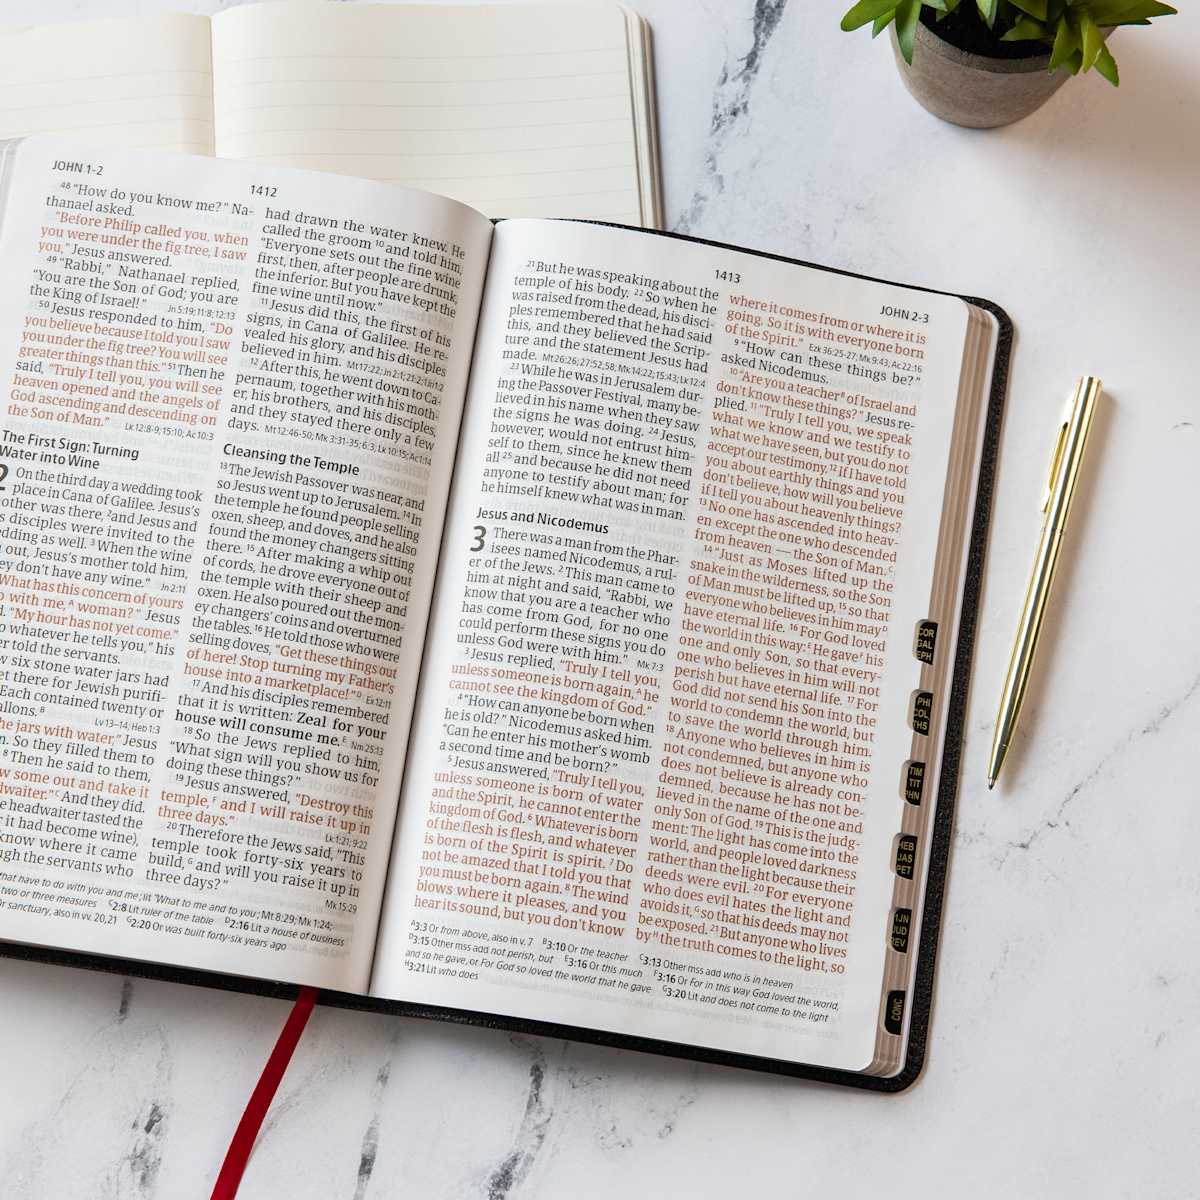 JOHN 1-2
1412
48 “How do you know me?” Na-
thanael asked.
“Before Philip called you, when
you were under the fig tree, I saw
you,” Jesus answered.
49 “Rabbi,” Nathanael replied,
“You are the Son of God; you are
the King of Israel!” Jn 5:19; 11:8; 12:13
50 Jesus responded to him, “Do
you believe because I told you I saw
you under the fig tree? You will see
greater things than this.” 51 Then he
said, “Truly I tell you, you will see
heaven opened and the angels of
God ascending and descending on
the Son of Man.” Lk 12:8-9; 15:10; Ac 10:3
The First Sign: Turning
Water into Wine
2 On the third day a wedding took
place in Cana of Galilee. Jesus’s
other was there, 2 and Jesus and
s disciples were invited to the
edding as well. 3 When the wine
out, Jesus’s mother told him,
ey don’t have any wine.” Jn 2:11
What has this concern of yours
with me,A woman?” Jesus
d. “My hour has not yet come.”
o whatever he tells you,” his
er told the servants.
w six stone water jars had
et there for Jewish purifi-
Each contained twenty or
allons.B Lv 13–14; Heb 1:3
he jars with water,” Jesus
n. So they filled them to
8 Then he said to them,
w some out and take it
dwaiter.”C And they did.
e headwaiter tasted the
r it had become wine),
know where it came
gh the servants who
had drawn the water knew. He
called the groom 10 and told him,
“Everyone sets out the fine wine
first, then, after people are drunk,
the inferior. But you have kept the
fine wine until now.”
11 Jesus did this, the first of his
signs, in Cana of Galilee. He re-
vealed his glory, and his disciples
believed in him. Mt 17:22; Jn 2:1; 21:2; 1Jn 1:2
12 After this, he went down to Ca-
pernaum, together with his moth-
er, his brothers, and his disciples,
and they stayed there only a few
days. Mt 12:46-50; Mk 3:31-35; 6:3; Lk 10:15; Ac 1:14
Cleansing the Temple
13 The Jewish Passover was near, and
so Jesus went up to Jerusalem. 14 In
the temple he found people selling
oxen, sheep, and doves, and he also
found the money changers sitting
there. 15 After making a whip out
of cords, he drove everyone out of
the temple with their sheep and
oxen. He also poured out the mon-
ey changers’ coins and overturned
the tables. 16 He told those who were
selling doves, “Get these things out
of here! Stop turning my Father’s
house into a marketplace!”D Ex 12:11
17 And his disciples remembered
that it is written: Zeal for your
house will consume me.E Nm 25:13
18 So the Jews replied to him,
“What sign will you show us for
doing these things?”
19 Jesus answered, “Destroy this
temple,F and I will raise it up in
three days.” Lk 1:21; 9:22
20 Therefore the Jews said, “This
temple took forty-six years to
build,G and will you raise it up in
three days?” Mk 15:29
hat have to do with you and me; lit ‘What to me and to you’; Mt 8:29; Mk 1:24;
two or three measures C2:8 Lit ruler of the table D2:16 Lit a house of business
Or sanctuary, also in vv. 20,21 G2:20 Or was built forty-six years ago
1413
JOHN 2-3
21 But he was speaking about the
temple of his body. 22 So when he
was raised from the dead, his disci-
ples remembered that he had said
this, and they believed the Scrip-
ture and the statement Jesus had
made. Mt 26:26; 27:52,58; Mk 14:22; 15:43; Lk 12:4
23 While he was in Jerusalem dur-
ing the Passover Festival, many be-
lieved in his name when they saw
the signs he was doing. 24 Jesus,
however, would not entrust him-
self to them, since he knew them
all 25 and because he did not need
anyone to testify about man; for
he himself knew what was in man.
Jesus and Nicodemus
3 There was a man from the Phar-
isees named Nicodemus, a rul-
er of the Jews. 2 This man came to
him at night and said, “Rabbi, we
know that you are a teacher who
has come from God, for no one
could perform these signs you do
unless God were with him.” Mk 7:3
3 Jesus replied, “Truly I tell you,
unless someone is born again,A he
cannot see the kingdom of God.”
4 “How can anyone be born when
he is old?” Nicodemus asked him.
“Can he enter his mother’s womb
a second time and be born?”
5 Jesus answered, “Truly I tell you,
unless someone is born of water
and the Spirit, he cannot enter the
kingdom of God. 6 Whatever is born
of the flesh is flesh, and whatever
is born of the Spirit is spirit. 7 Do
not be amazed that I told you that
you must be born again. 8 The wind
blows where it pleases, and you
hear its sound, but you don’t know
where it comes from or where it is
going. So it is with everyone born
of the Spirit.” Ezk 36:25-27; Mk 9:43; Ac 22:16
9 “How can these things be?”
asked Nicodemus.
10 “Are you a teacherB of Israel and
don’t know these things?” Jesus re-
plied. 11 “Truly I tell you, we speak
what we know and we testify to
what we have seen, but you do not
accept our testimony. 12 If I have told
you about earthly things and you
don’t believe, how will you believe
if I tell you about heavenly things?
13 No one has ascended into heav-
en except the one who descended
from heaven — the Son of Man.C
14 “Just as Moses lifted up the
snake in the wilderness, so the Son
of Man must be lifted up, 15 so that
everyone who believes in him mayD
have eternal life. 16 For God loved
the world in this way:E He gaveF his
one and only Son, so that every-
one who believes in him will not
perish but have eternal life. 17 For
God did not send his Son into the
world to condemn the world, but
to save the world through him.
18 Anyone who believes in him is
not condemned, but anyone who
does not believe is already con-
demned, because he has not be-
lieved in the name of the one and
only Son of God. 19 This is the judg-
ment: The light has come into the
world, and people loved darkness
rather than the light because their
deeds were evil. 20 For everyone
who does evil hates the light and
avoids it,G so that his deeds may not
be exposed. 21 But anyone who lives
byH the truth comes to the light, so
A3:3 Or from above, also in v. 7 B3:10 Or the teacher C3:13 Other mss add who is in heaven
D3:15 Other mss add not perish, but E3:16 Or this much F3:16 Or For in this way God loved the world,
and so he gave, or For God so loved the world that he gave G3:20 Lit and does not come to the light
H3:21 Lit who does
COR
GAL
EPH
PHI
COL
THS
TIM
TIT
PHN
HEB
JAS
PET
1JN
JUD
REV
CONC